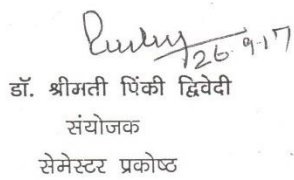 26.9.17
डॉ. श्रीमती पिंकी द्विवेदी
संयोजक
सेमेस्टर प्रकोष्ठ